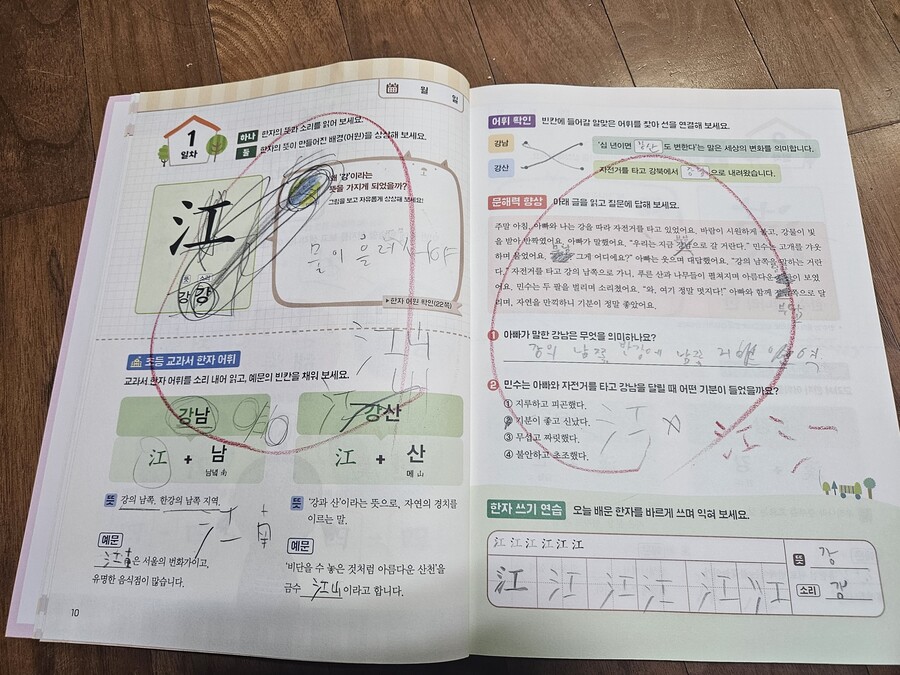 월 일
1
일차
하나 한자의 뜻과 소리를 읽어 보세요.
둘 한자의 뜻이 만들어진 배경(어원)을 상상해 보세요.
江
뜻 소리
강 강
왜 '강'이라는
뜻을 가지게 되었을까?
그림을 보고 자유롭게 상상해 보세요!
물이 흘러
▶한자 어원 확인(22쪽)
江山
초등 교과서 한자 어휘
교과서 한자 어휘를 소리 내어 읽고, 예문의 빈칸을 채워 보세요.
강남
江 + 남
남녘 南
뜻 강의 남쪽. 한강의 남쪽 지역.
江南
예문
江南은 서울의 번화가이고,
유명한 음식점이 많습니다.
강산
江 + 산
메 山
뜻 '강과 산'이라는 뜻으로, 자연의 경치를
이르는 말.
예문
'비단을 수 놓은 것처럼 아름다운 산천'을
금수 江山이라고 합니다.
10
어휘 확인 빈칸에 들어갈 알맞은 어휘를 찾아 선을 연결해 보세요.
강남
'십 년이면 강산 도 변한다'는 말은 세상의 변화를 의미합니다.
강산
자전거를 타고 강북에서 강남 으로 내려왔습니다.
문해력 향상 아래 글을 읽고 질문에 답해 보세요.
주말 아침, 아빠와 나는 강을 따라 자전거를 타고 있었어요. 바람이 시원하게 불고, 강물이 빛
을 받아 반짝였어요. 아빠가 말했어요. "우리는 지금 강남으로 갈 거란다." 민수는 고개를 갸웃
하며 물었어요. "그게 어디예요?" 아빠는 웃으며 대답했어요. "강의 남쪽을 말하는 거란
다." 자전거를 타고 강의 남쪽으로 가니, 푸른 산과 나무들이 펼쳐지며 아름다운 보였
어요. 민수는 두 팔을 벌리며 소리쳤어요. "와, 여기 정말 멋지다!" 아빠와 함께 쪽으로 달
리며, 자연을 만끽하니 기분이 정말 좋았어요.
1 아빠가 말한 강남은 무엇을 의미하나요?
강의 남쪽 한강에 남쪽
2 민수는 아빠와 자전거를 타고 강남을 달릴 때 어떤 기분이 들었을까요?
① 지루하고 피곤했다.
② 기분이 좋고 신났다.
③ 무섭고 짜릿했다.
④ 불안하고 초조했다.
江
한자 쓰기 연습 오늘 배운 한자를 바르게 쓰며 익혀 보세요.
江 江 江 江 江 江
江 江 江 江 江 江 江
뜻 강
소리 강